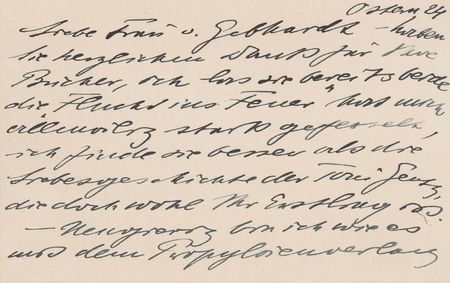 Ostern 24
Liebe Frau v. Gebhardt – haben
Sie herzlichen Dank für Ihre
Bücher, ich las sie bereits beide
die Flucht ins Feuer" hat mich
stark gefesselt,
ich finde sie besser als die
Liebesgeschichte der Toni Gentz,
die doch wohl Ihr Erstling ist.
– Neugierig bin ich wie es
mit dem Propyläenverlag